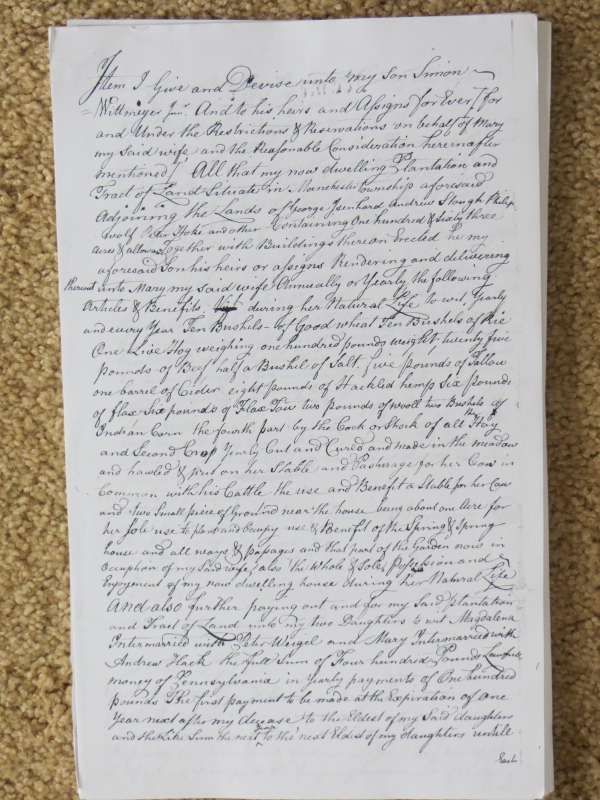 Item I Give and Devise unto my Son Simon
Wittmeyer Junr. And to his heirs and Assigns for Ever [for
and Under the Restrictions & Reservations on behalf of Mary
my said wife and the Reasonable Consideration hereinafter
mentioned] All that my now dwelling Plantation and
Tract of Land Situate in Manchester township aforesaid
Adjoining the Lands of George Isenhard Andrew Slough Philip
Wolf Peter Hoke and other Containing One hundred & Sixty three
acres & allowance Together with Buildings thereon Erected he my
aforesaid Son his heirs or assigns Rendering and delivering
thereout unto Mary my said wife Annually or Yearly the following
Articles & Benefits during her Natural Life to wit. Yearly
and every Year Ten Bushels of Good wheat Ten Bushels of Rie
One Live Hog weighing one hundred pounds weight, twenty five
pounds of Beef half a Bushel of Salt. five pounds of Tallow
one barrel of Cider eight pounds of Hackled hemp Six pounds
of flax Six pounds of Flax Tow two pounds of wooll two Bushels of
Indian Corn the fourth part by the Cock or Shock of all the Hay
and Second Crop Yearly Cut and Cured and made in the meadow
and hawled & put on her Stable and Pasturage for her Cow in
Common with his Cattle the use and Benefit a Stable for her Cow
and two Small piece of Ground near the house being about one Acre for
her Sole use to plant and Occupy use & Benefit of the Spring & Spring
house and all ways & passages and that part of the Garden now in
Occupation of my Said wife, also the Whole & Sole Possession and
Enjoyment of my now dwelling house during her Natural Life
And also further paying out and for my Said plantation
and Tract of Land unto my two Daughters to wit Magdalena
Intermarried with Peter Weigel and Mary Intermarried with
Andrew Hack the full Sum of Four hundred Pounds Lawfull
money of Pennsylvania in Yearly payments of One hundred
pounds The first payment to be made at the Expiration of One
Year next after my decease to the Eldest of my Said daughters
and the Like Sum the next year to the next Eldest of my daughters untill
Each